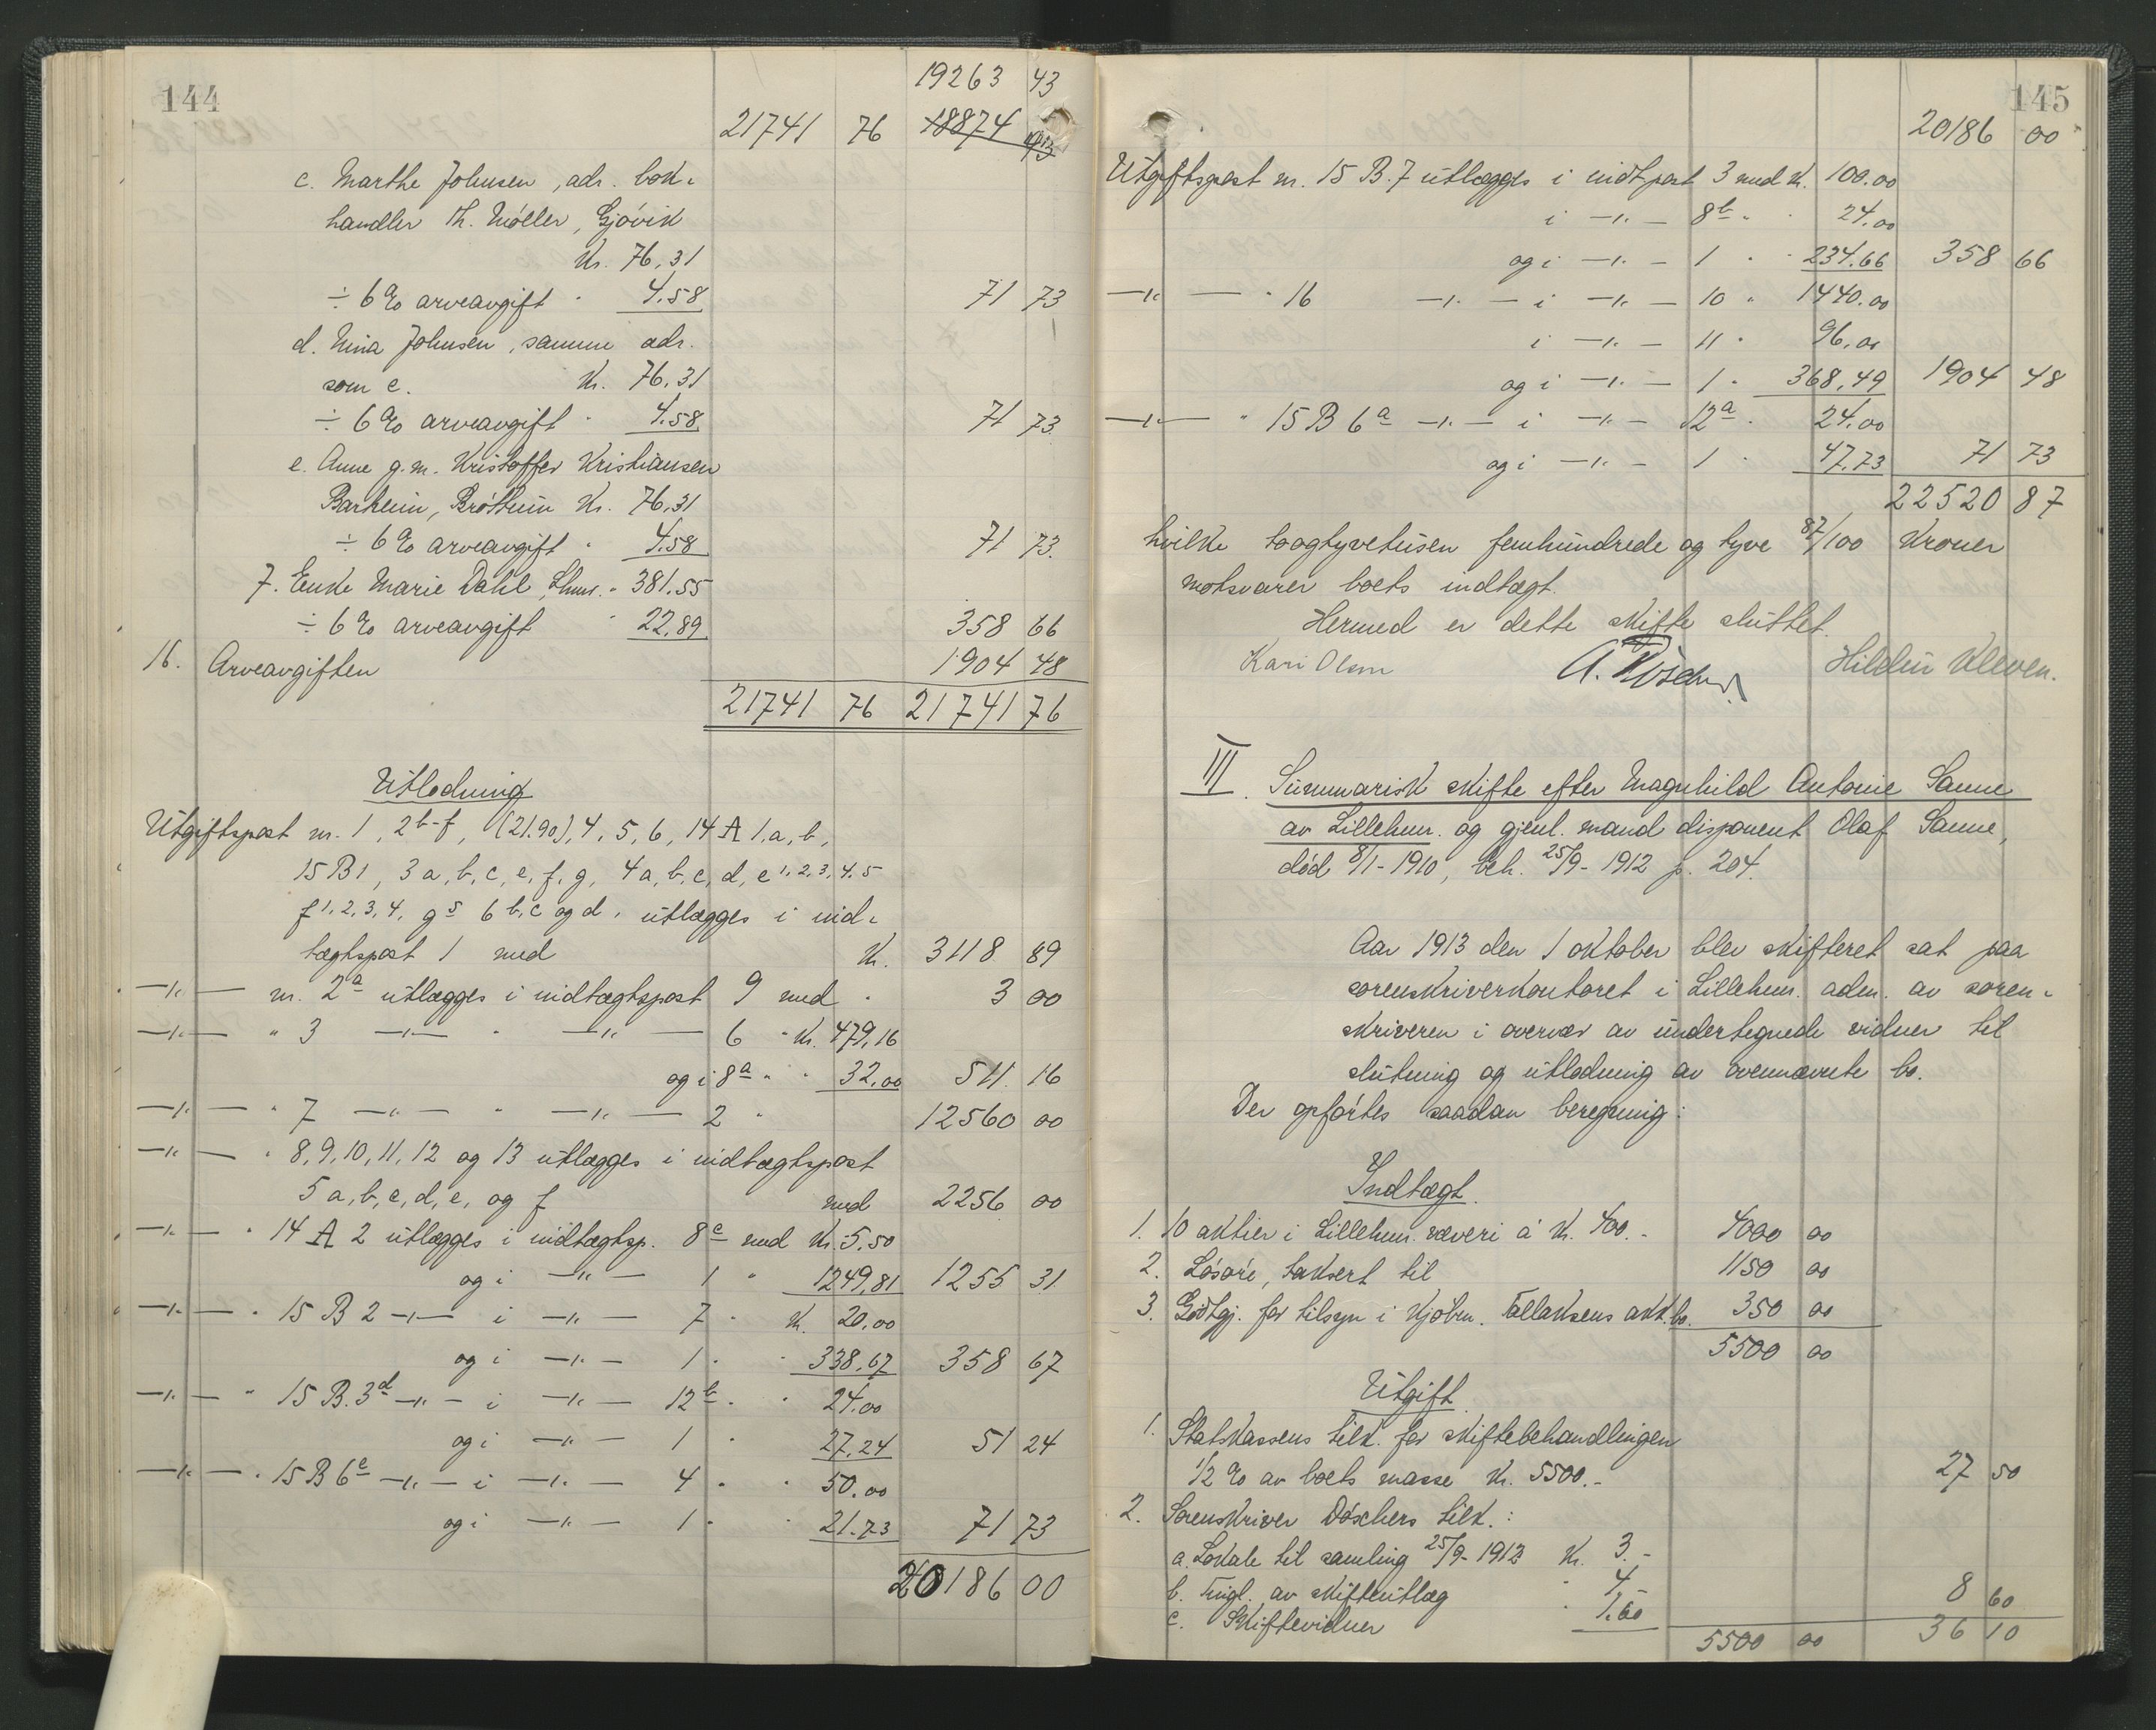 144
19263 43
21741 76 18874
c. Marthe Johnsen, adr. bok-
handler Th. Møller, Gjøvik
Kr. 76,31
÷ 6 % arveavgift " 4.58 71 73
d. Nina Johnsen, samme adr.
som c. Kr. 76,31
÷ 6 % arveavgift " 4.58 71 73
e. Anne g.m. Kristoffer Kristiansen
Barheim, Brøttum Kr. 76,31
÷ 6 % arveavgift " 4.58 71 73
7. Enke Marie Dahl, Lhmr. " 381.55
÷ 6 % arveavgift " 22,89 358 66
16. Arveavgiften 1904 48
21741 76 21741 76
Utlodning
Utgiftspost nr. 1, 2 b-f, (21.90), 4, 5, 6, 14 A 1.a, b,
15 B 1, 3 a, b, c, e, f, g, 4 a, b, c, d, e 1, 2, 3, 4, 5
f 1, 2, 3, 4, g 5 6 b, c og d, utlægges i ind-
tægtspost 1 med Kr. 3118 89
—"— nr. 2a utlægges i indtægtspost 9 med " 3 00
—"— " 3 —"— " —"— 6 " Kr. 479,16
og i 8a " " 32,00 511 16
—"— " 7 —"— " —"— 2 " 12560 00
—"— " 8, 9, 10, 11, 12 og 13 utlægges i indtægtspost
5 a, b, c, d, e, og f med 2256 00
—"— " 14 A 2 utlægges i indtægtsp. 8c med Kr. 5,50
og i —"— 1 " 1249,81 1255 31
—"— " 15 B 2 —"— i —"— 7 " Kr. 20,00
og i —"— 1 " " 338,67 358 67
—"— " 15 B. 3d —"— i —"— 12b " " 24.00
og i —"— 1 " 27,24 51 24
—"— " 15 B 6e —"— i —"— 4 " " 50.00
og i —"— 1 " " 21.73 71 73
20186 00
145
20186 00
Utgiftspost nr. 15 B. 7 utlægges i indt.post 3 med Kr. 100.00
i —"— 8b " " 24.00
og i —"— 1 " " 234.66 358 66
—"— " 16 —"— i —"— 10 " 1440.00
i —"— 11 " 96,00
og i —"— 1 " 368,49 1904 48
—"— " 15 B 6a —"— i —"— 12a " 24.00
og i —"— 1 " 47,73 71 73
22520 87
hvilke toogtyvetusen femhundrede og tyve 87/100 Kroner
motsvarer boets indtægt.
Hermed er dette skifte sluttet.
Kari Olsen A. Døscher Hildur Kleven.
III. Summarisk skifte efter Magnhild Antonie Sanne
av Lillehmr. og gjenl. mand disponent Olaf Sanne,
død 8/1-1910, beh. 25/9-1912 p. 204.
Aar 1913 den 1 oktober blev skifteret sat paa
sorenskriverkontoret i Lillehmr. adm. av soren-
skriveren i overvær av undertegnede vidner til
slutning og utlodning av ovennævnte bo.
Der opførtes saadan beregning:
Indtægt.
1. 10 aktier i Lillehmr. væveri á Kr. 400.- 4000 00
2. Løsøre, taksert til 1150 00
3. Godtgj. for tilsyn i Kjøbm. Tallaksens akk.bo. 350 00
5500 00
Utgift.
1. Statskassens tilk. for skiftebehandlingen
1/2 % av boets masse Kr. 5500.- 27 50
2. Sorenskriver Døschers tilk.:
a. Lokale til samling 25/9-1912 Kr. 3.-
b. Tingl. av skifteutlæg " 4.-
c. Skiftevidner " 1.60 8 60
5500 00 36 10